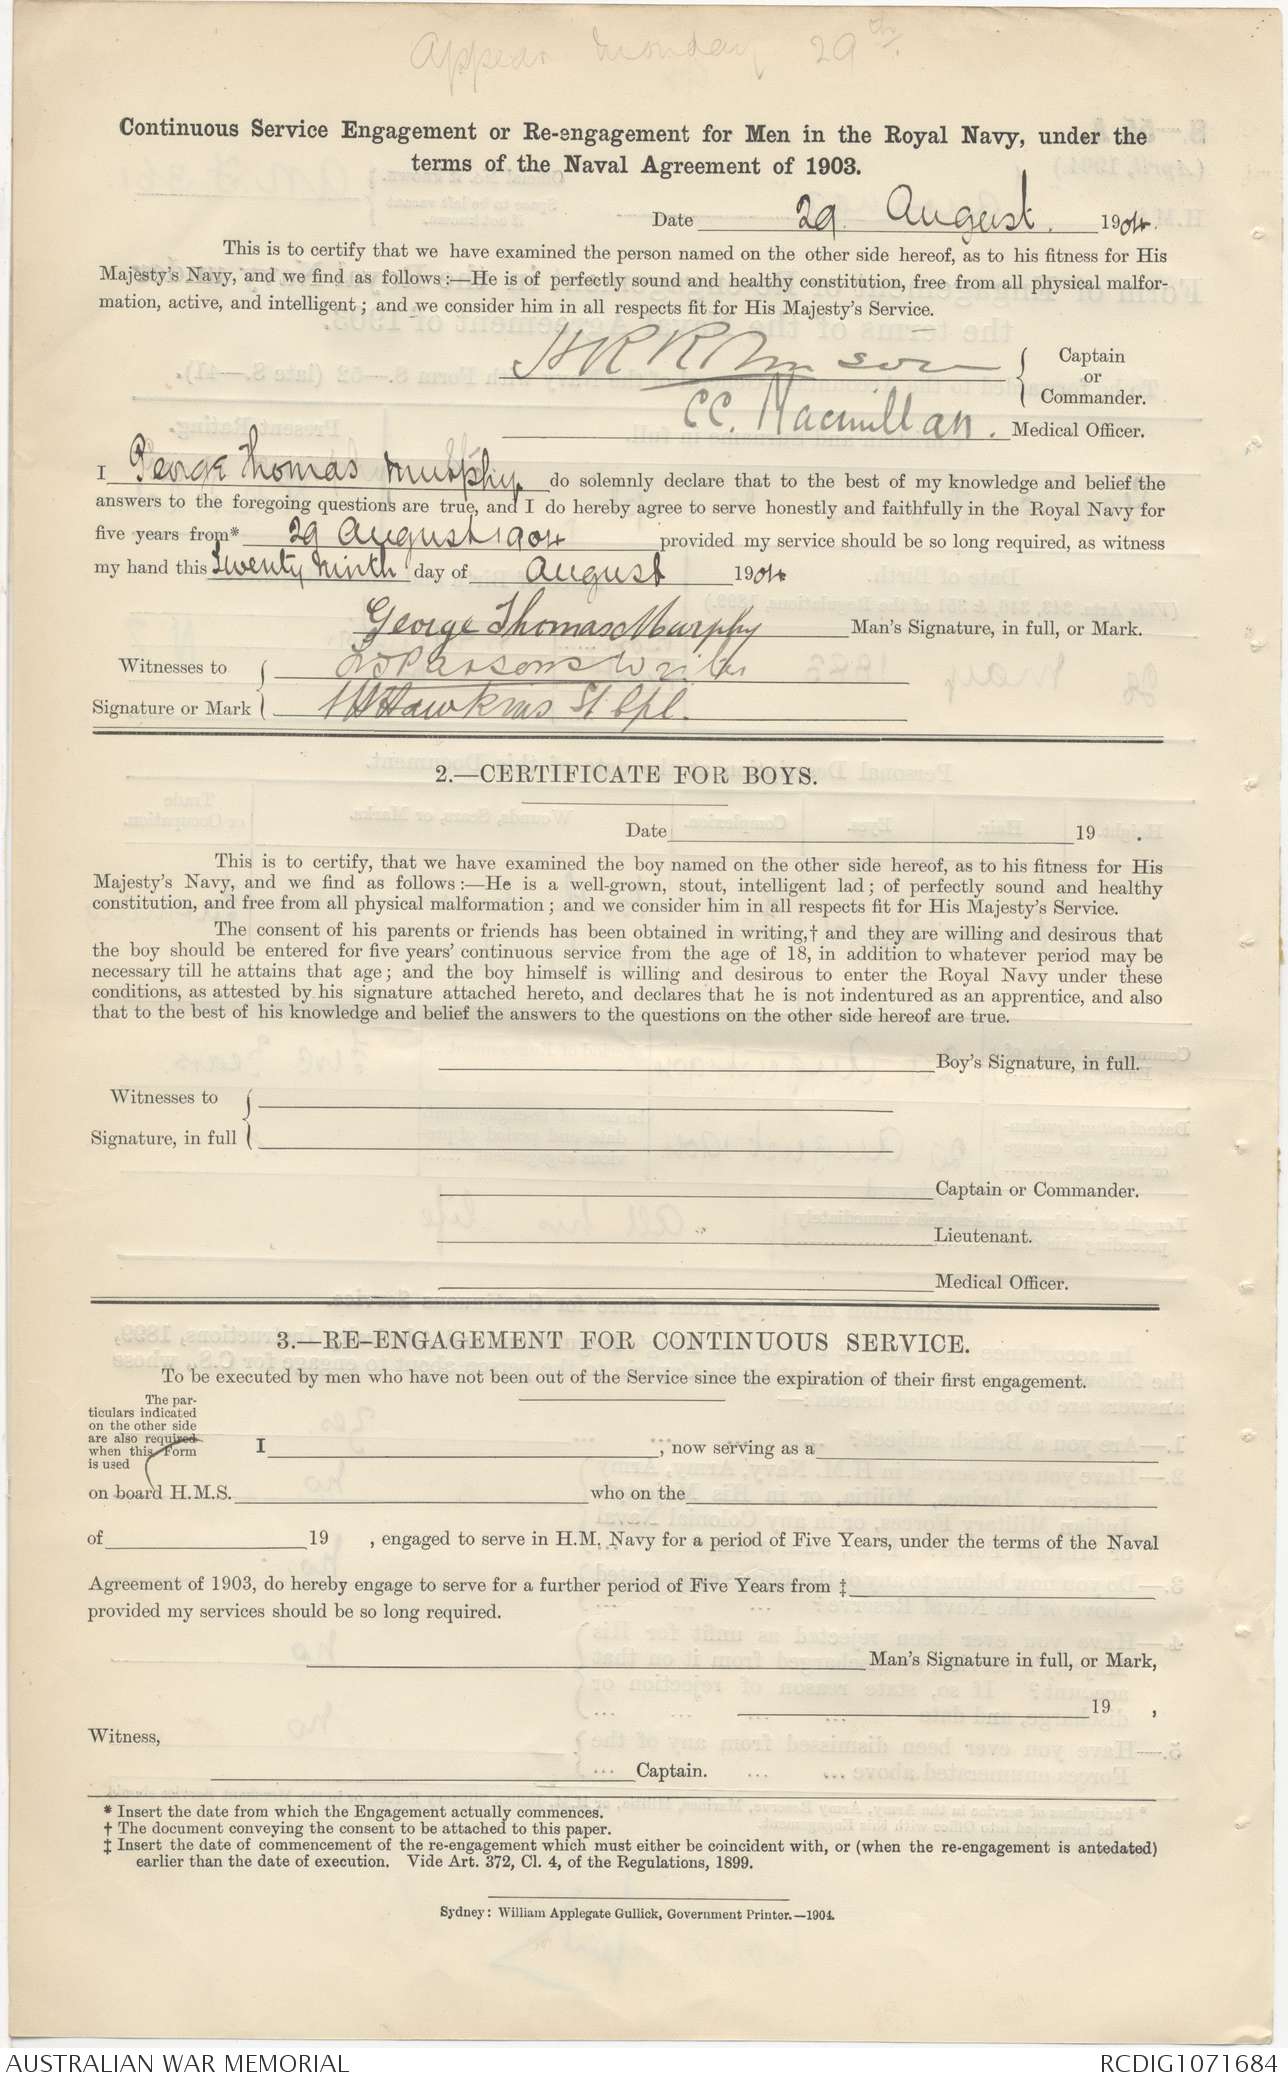 Appear Monday 29th.
Continuous Service Engagement or Re-engagement for Men in the Royal Navy, under the
terms of the Naval Agreement of 1903.
Date 29 August. 1904.
This is to certify that we have examined the person named on the other side hereof, as to his fitness for His
Majesty's Navy, and we find as follows :—He is of perfectly sound and healthy constitution, free from all physical malfor-
mation, active, and intelligent ; and we consider him in all respects fit for His Majesty's Service.
Captain
or
Commander.
CC. Macmillan. Medical Officer.
I George Thomas Murphy do solemnly declare that to the best of my knowledge and belief the
answers to the foregoing questions are true, and I do hereby agree to serve honestly and faithfully in the Royal Navy for
five years from* 29 August 1904 provided my service should be so long required, as witness
my hand this Twenty Ninth day of August 1904
George Thomas Murphy Man's Signature, in full, or Mark.
Witnesses to Parsons Writer
Signature or Mark Hawkins Sh Cpl.
2.—CERTIFICATE FOR BOYS.
Date 19 .
This is to certify, that we have examined the boy named on the other side hereof, as to his fitness for His
Majesty's Navy, and we find as follows :—He is a well-grown, stout, intelligent lad ; of perfectly sound and healthy
constitution, and free from all physical malformation ; and we consider him in all respects fit for His Majesty's Service.
The consent of his parents or friends has been obtained in writing,† and they are willing and desirous that
the boy should be entered for five years' continuous service from the age of 18, in addition to whatever period may be
necessary till he attains that age ; and the boy himself is willing and desirous to enter the Royal Navy under these
conditions, as attested by his signature attached hereto, and declares that he is not indentured as an apprentice, and also
that to the best of his knowledge and belief the answers to the questions on the other side hereof are true.
Boy's Signature, in full.
Witnesses to
Signature, in full
Captain or Commander.
Lieutenant.
Medical Officer.
3.—RE-ENGAGEMENT FOR CONTINUOUS SERVICE.
To be executed by men who have not been out of the Service since the expiration of their first engagement.
The par-
ticulars indicated
on the other side
are also required
when this Form
is used
I , now serving as a
on board H.M.S. who on the
of 19 , engaged to serve in H.M. Navy for a period of Five Years, under the terms of the Naval
Agreement of 1903, do hereby engage to serve for a further period of Five Years from ‡
provided my services should be so long required.
Man's Signature in full, or Mark,
19 ,
Witness,
Captain.
* Insert the date from which the Engagement actually commences.
† The document conveying the consent to be attached to this paper.
‡ Insert the date of commencement of the re-engagement which must either be coincident with, or (when the re-engagement is antedated)
earlier than the date of execution. Vide Art. 372, Cl. 4, of the Regulations, 1899.
Sydney: William Applegate Gullick, Government Printer.—1904.
AUSTRALIAN WAR MEMORIAL
RCDIG1071684